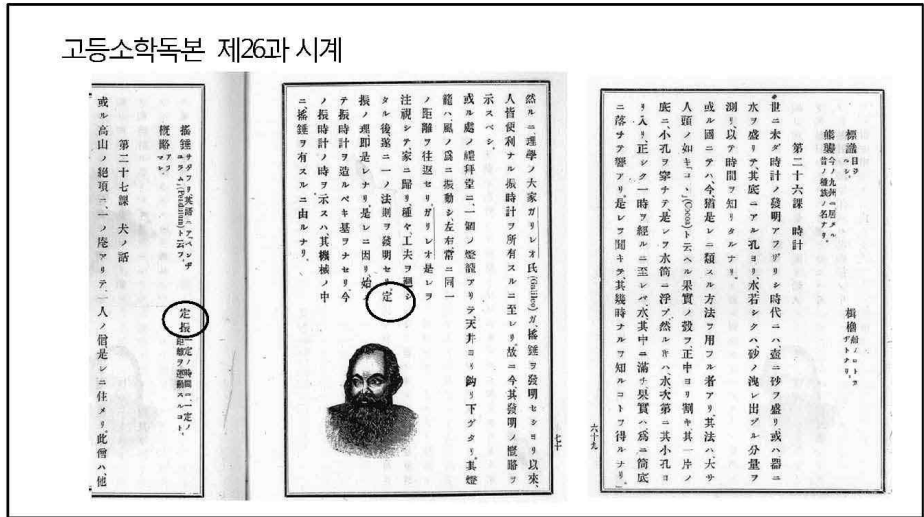 고등소학독본 제26과 시계
標識 目ジ
ルシ。
楫櫓 船ノロトカ
ヂトナリ。
熊襲 今ノ九州ニ居タル
昔ノ種族ノ名ナリ。
第二十六課 時計
世ニ未ダ時計ノ發明アラザリシ時代ニハ、壺ニ砂ヲ盛リ、或ハ器ニ
水ヲ盛リテ、其底ニアル孔ヨリ、水若シクハ、砂ノ洩レ出ヅル分量ヲ
測リ、以テ時間ヲ知リタルナリ。
或ル國ニテハ、今猶是レニ類スル方法ヲ用フル者アリ、其法ハ、大サ
人頭ノ如キ、コヽ(Cocoa)ト云ヘル果實ノ殼ヲ、正中ヨリ割キ、其一片ノ
底ニ、小孔ヲ穿チテ、是レヲ水筒ニ浮ブ、然ルトキハ、水次第ニ其小孔ヨ
リ入リ、正シク一時ヲ經ルニ至レバ、水其中ニ滿チ、果實ハ、爲ニ筒底
ニ落チテ響アリ、是レヲ聞キテ、其幾時ナルヲ知ルコトヲ得ルナリ。
六十九
七十
然ルニ理學ノ大家ガリレオ氏(Galileo)ガ、搖錘ヲ發明セシヨリ以來、
人皆便利ナル振時計ヲ所有スルニ至レリ、故ニ今其發明ノ概略ヲ
示スベシ。
或ル處ノ禮拜堂ニ、一個ノ燈籠アリテ、天井ヨリ釣リ下ゲタリ、其燈
籠ハ、風ノ爲ニ振動シ、左右常ニ同一
ノ距離ヲ往返セリ、ガリレオ是レヲ
注視シテ、家ニ歸リ、種々工夫ヲ
タル後、遂ニ一ノ法則ヲ發明セリ、定
振ノ理即是レナリ、是レニ因リ、始メ
テ振時計ヲ造ルベキ基ヲナセリ、今
ノ振時計ノ時ヲ示スハ、其機械ノ中
ニ、搖錘ヲ有スルニ由ルナリ。
搖錘 サゲフリ、英語ニテ、ペンヂ
ユラム(Pendulum)ト云フ。
定振 一定ノ時間ニ、一定ノ
距離ヲ運動スルコト。
概略 アラ
マシ。
第二十七課 犬ノ話
或ル高山ノ絕項ニ、一ノ庵アリテ、一人ノ僧是レニ住メリ、此僧ハ、他